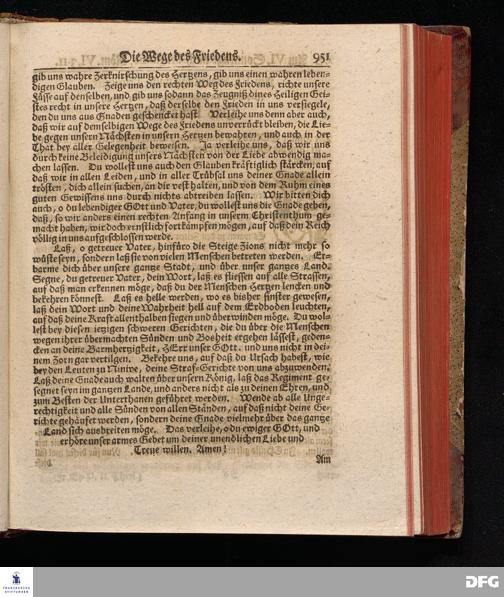 Die Wege des Friedens. 951
gib uns wahre Zerknirschung des Hertzens, gib uns einen wahren leben-
digen Glauben. Zeige uns den rechten Weg des Friedens, richte unsere
Füsse auf denselben, und gib uns sodann das Zeugniß dines Heiligen Gei-
stes recht in unsere Hertzen, daß derselbe den Frieden in uns versiegele,
den du uns aus Gnaden geschencket hast. Verleihe uns denn aber auch,
daß wir auf demselbigen Wege des Friedens unverrückt bleiben, die Lie-
be gegen unsern Nächsten in unsern Hertzen bewahren, und auch in der
That bey aller Gelegenheit beweisen. Ja verleihe uns, daß wir uns
durch keine Beleidigung unsers Nächsten von der Liebe abwendig ma-
chen lassen. Du wollest uns auch den Glauben kräftiglich stärcken, auf
daß wir in allen Leiden, und in aller Trübsal uns deiner Gnade allein
trösten, dich allein suchen, an dir vest halten, und von dem Ruhm eines
guten Gewissens uns durch nichts abtreiben lassen. Wir bitten dich
auch, o du lebendiger GOtt und Vater, du wollest uns die Gnade geben,
daß, so wir anders einen rechten Anfang in unserm Christenthum ge-
macht haben, wir doch ernstlich fortkämpfen mögen, auf daß dein Reich
völlig in uns aufgeschlossen werde.
Laß, o getreuer Vater, hinfüro die Steige Zions nicht mehr so
wüste seyn, sondern laß sie von vielen Menschen betreten werden. Er-
barme dich über unsere gantze Stadt, und über unser gantzes Land.
Segne, du getreuer Vater, dein Wort, laß es fliessen auf alle Strassen,
auf daß man erkennen möge, daß du der Menschen Hertzen lencken und
bekehren könnest. Laß es helle werden, wo es bisher finster gewesen,
laß dein Wort und deine Wahrheit hell auf dem Erdboden leuchten,
auf daß deine Kraft allenthalben siegen und überwinden möge. Du wol-
lest bey diesen ietzigen schweren Gerichten, die du über die Menschen
wegen ihrer übermachten Sünden und Bosheit ergehen lässest, geden-
cken an deine Barmhertzigkeit, HErr unser GOtt, und uns nicht in dei-
nem Zorn gar vertilgen. Bekehre uns, auf daß du Ursach habest, wie
bey den Leuten zu Ninive, deine Straf-Gerichte von uns abzuwenden.
Laß deine Gnade auch walten über unsern König, laß das Regiment ge-
segnet seyn im gantzen Lande, und anders nicht als zu deinen Ehren, und
zum Besten der Unterthanen geführet werden. Wende ab alle Unge-
rechtigkeit und alle Sünden von allen Ständen, auf daß nicht deine Ge-
richte gehäufet werden, sondern deine Gnade vielmehr über das gantze
Land sich ausbreiten möge. Das verleihe, o du ewiger GOtt, und
erhöre unser armes Gebet um deiner unendlichen Liebe und
Treue willen. Amen!
Am
FRANCKESCHE
STIFTUNGEN
DFG